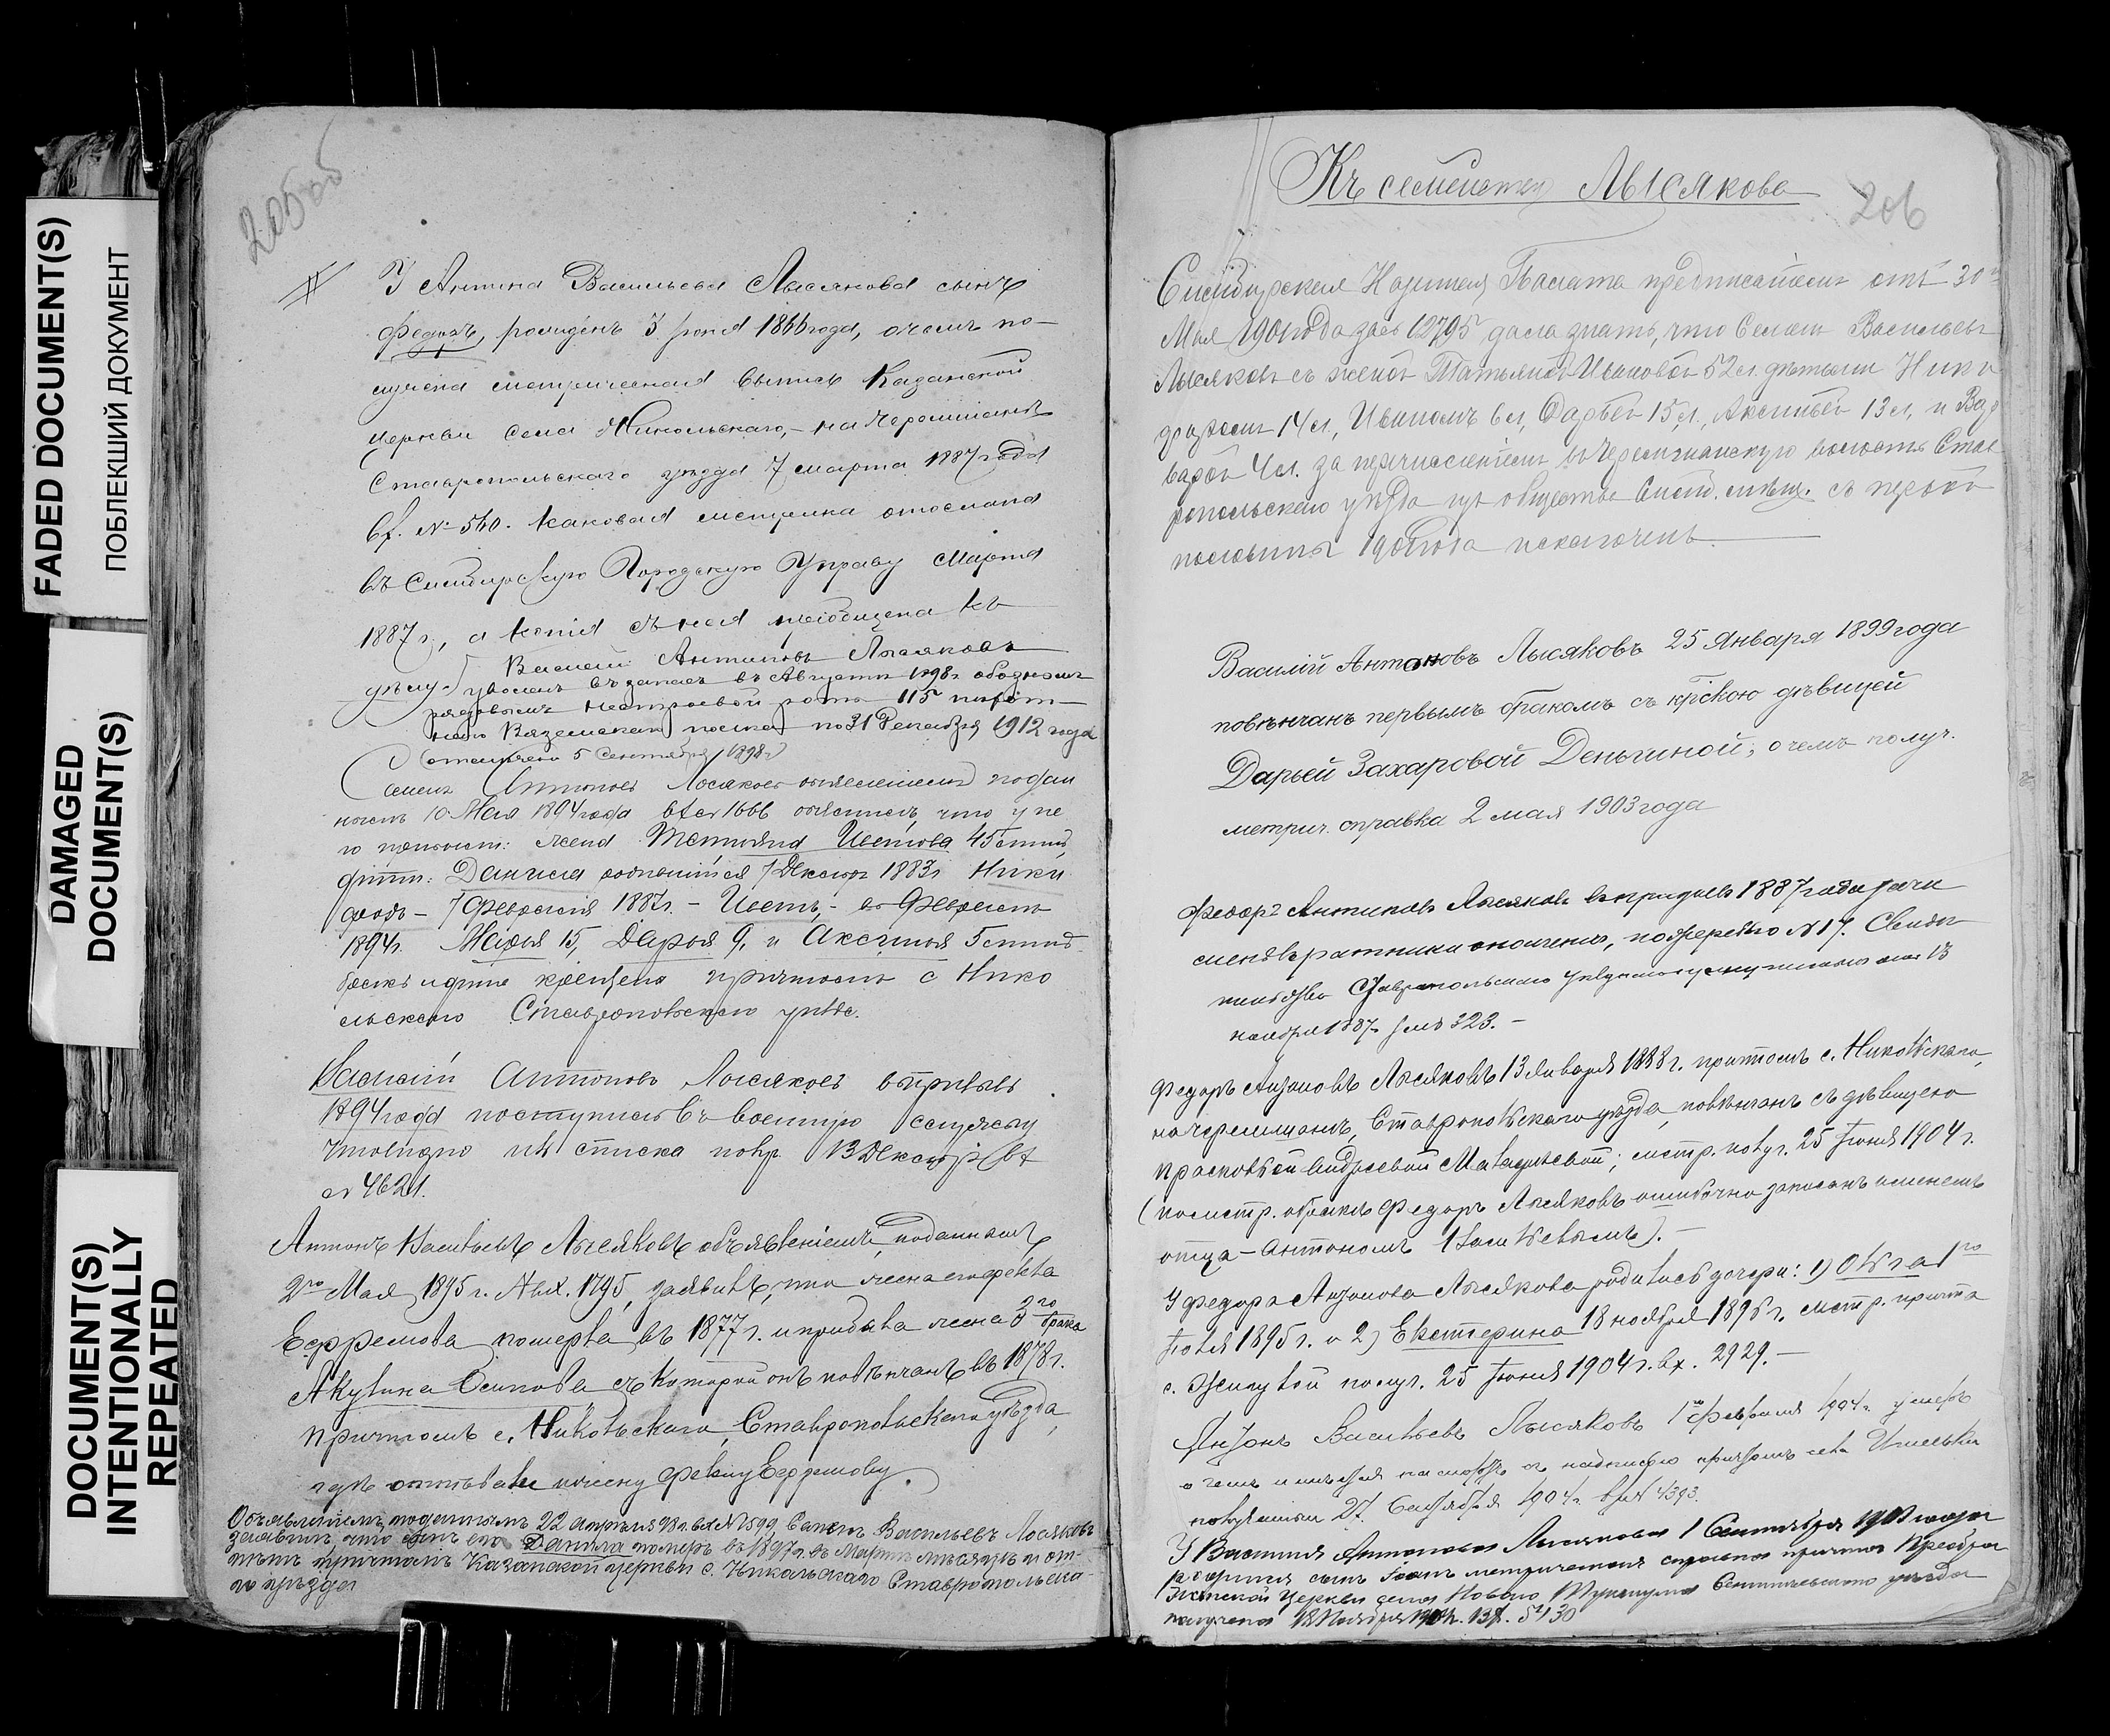 FADED DOCUMENT(S)
ПОБЛЕКШИЙ ДОКУМЕНТ
DAMAGED
DOCUMENT(S)
DOCUMENT(S)
INTENTIONALLY
REPEATED
205
У Антона Васильева Лысякова сынъ
Федоръ, рожденъ 3 1866 года, о чемъ по-
лучена метрическая выпись Казанской
церкви села Никольскаго, на Черемшанѣ
Ставропольскаго уѣзда 7 марта 1887 года
вх. № 560. Каковая метрика отослана
въ Симбирскую Городскую Управу Марта
1887 г., а копія съ нея пріобщена къ
дѣлу.
Василій Антоновъ Лысяковъ
уволенъ въ запасъ въ Августѣ 1898 г.
рядовымъ нестроевой роты 115 пѣхот-
наго Вяземскаго полка по 31 Декабря 1912 года
(отмѣчено 5 Сентября 1898 г.)
Семенъ Лысяковъ объявленіемъ подан
нымъ 10 Мая 1894 года вх № 1666 объяснилъ, что у не
го жена Татьяна Иванова 45 лѣтъ,
дѣти: Данила родившійся 1883 г. Ники
форъ – 7 Февраля 1887 г. – Иванъ, – въ Февралѣ
1894 г. Марья 15, Дарья 9, и Аксинья 5 лѣтъ
бракъ и дѣти крещены причтомъ с. Нико
льскаго Ставропольскаго уѣзд.
Василій Антоновъ Лысяковъ въ призывъ
1894 года поступилъ въ военную службу
что видно изъ списка 13 Декабря вх
№ 4621.
Антонъ Васильевъ Лысяковъ объявленіемъ, поданнымъ
2го Мая 1895 г. № вх. 1795, заявилъ, что жена его Фекла
Ефремова померла въ 1877 г. и прибыла жена 2го брака
Акулина Осипова съ которой онъ повѣнчанъ въ 1878 г.
причтомъ с. Никольскаго, Ставропольскаго уѣзда,
гдѣ отпѣвали и жену Феклу Ефремову.
Объявленіемъ, поданнымъ 22 апрѣля 98 г. вх № 1599, Семенъ Васильевъ Лысяковъ
заявилъ, что сынъ его Данила померъ въ 1897 г. въ Мартѣ мѣсяцѣ и от-
пѣтъ причтомъ Казанской церкви с. Никольскаго Ставропольска-
го уѣзда
Къ семейству Лысякова
206
Симбирская Казенная Палата предписаніемъ отъ 30
Мая 1901 года за № 12795 дала знать, что Семенъ Васильевъ
Лысяковъ съ женой Татьяной Ивановой 52 л. дѣтьми Ники
форомъ 14 л., Иваномъ 6 л., Дарьей 15 л., Аксиньей 13 л., и Вар
варой 4 л. за перечисленіемъ въ Черемшанскую волость Став
ропольскаго уѣзда изъ общества Симб. мѣщ. съ первой
половины 1901 года исключенъ.
Василій Антоновъ Лысяковъ 25 Января 1899 года
повѣнчанъ первымъ бракомъ съ кр̃скою дѣвицей
Дарьей Захаровой Деньгиной, о чемъ получ.
метрич. справка 2 мая 1903 года
Федоръ Антоновъ Лысяковъ въ призывъ 1887 года зачи
сленъ въ ратники ополченія, по жеребью № 17. Свидѣ
тельство Ставропольскаго уѣзднаго присутствія отъ 13
ноября 1887 г. за № 323. –
Федоръ Антоновъ Лысяковъ 13 Января 1888 г. причтомъ с. Никольскаго,
на Черемшанѣ, Ставропольскаго уѣзда, повѣнчанъ съ дѣвицею
Прасковьей Андреевой; метр. получ. 25 Іюня 1904 г.
(по метр. о бракѣ Федоръ Лысяковъ ошибочно записанъ именемъ
отца – Антономъ Васильевымъ). –
У Федора Антонова Лысякова родились дочери: 1) Ольга 1го
Іюля 1895 г. и 2) Екатерина 18 ноября 1896 г. метр. причта
с. получ. 25 Іюня 1904 г. вх. 2929. –
Антонъ Васильевъ Лысяковъ 1го февраля 1904 г. умеръ
о чемъ имѣется на съ надписью причтомъ села
27 Сентября 1904 г. вх № 4393.
У Василія Антонова Лысякова 1 Сентября года
родился сынъ Іоаннъ метрическая справка причта Преобра
женской Церкви села Новаго Сенгилеевскаго уѣзда
получена 18 Ноября 5430